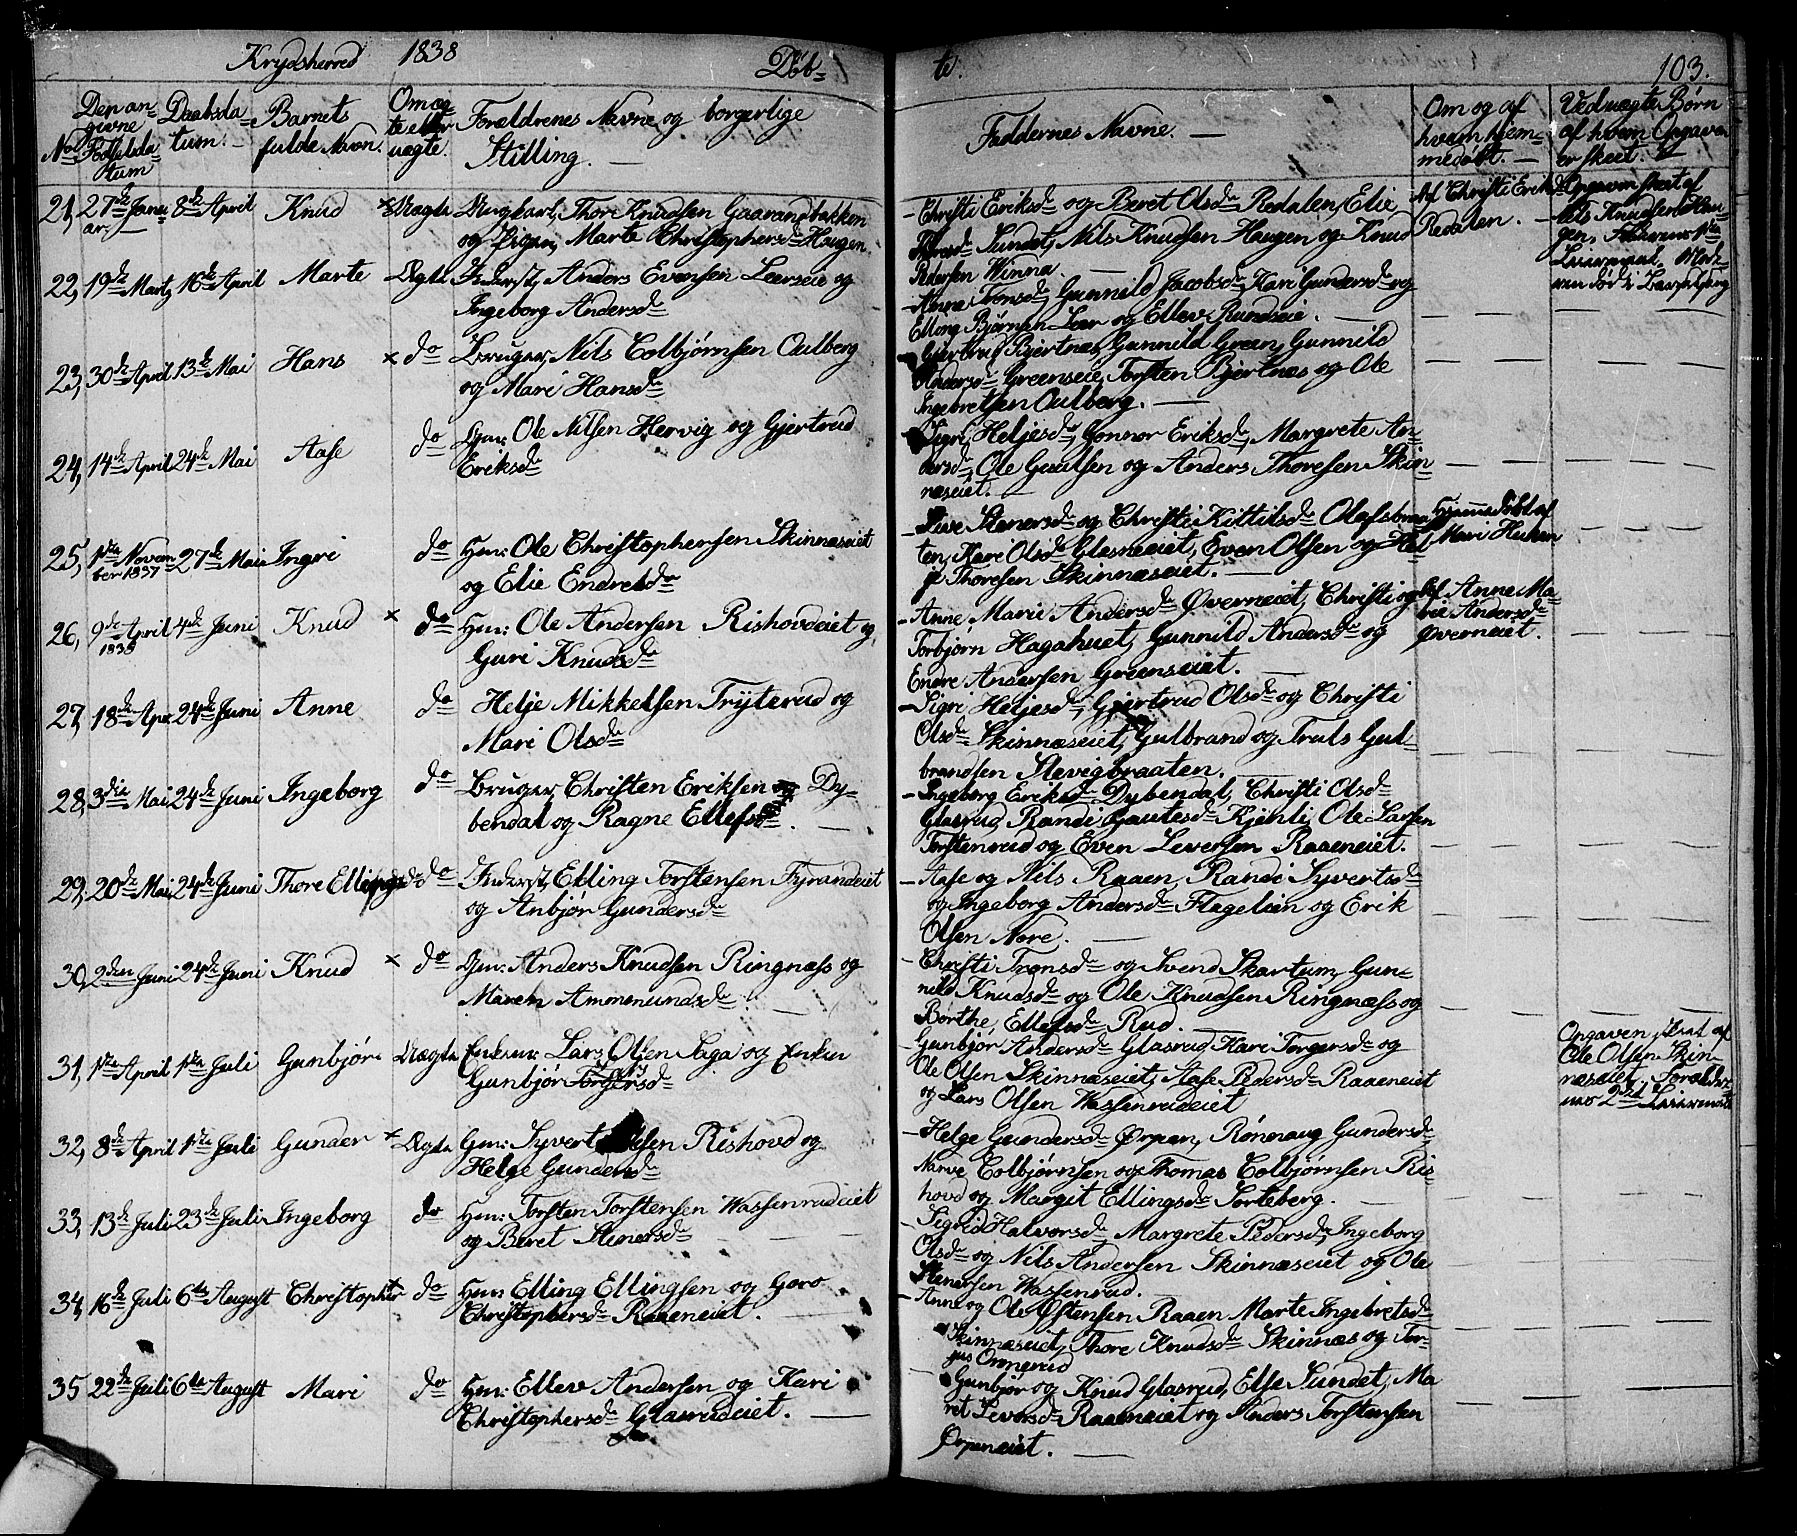 Krydsherred 1838 Döb-
te. 103.
No
Den an-
givne
Födselsda-
tum
Daabsda-
tum.
Barnets
fulde Navn.
Om æg-
te eller
uægte.
Forældrenes Navne og borgerlige
Stilling.
Faddernes Navne.
Om og af
hvem hjem-
medöbt.
Ved uægte Børn
af hvem Opgaven
er skeet.
21, 27de Janu- 8de April Knud × Uægte Ungkarl, Thore Knudsen Gaarandbakken
ar,
og Pigen, Marte Christophersdr Haugen.
- Christi Eriksdr og Beret Olsdr Redalen, Elie
Thoresdr Sundet, Nils Knudsen Haugen og Knud
Pedersen Winna.
Af Christi Eriksdr
Redalen.
Opgaven skeet af
Nils Knudsen Hau-
gen, Faderens 1ste
Leiermaal, Mod-
22, 19de Martz 16de April Marte Ægte Inderst, Anders Evensen Leerseie og
Ingeborg Andersdr
- Anne Tronsdr, Gunnild Jacobsdr, Kari Gundersdr og
Ellong Bjørnsen Leer og Ellev Rundseie.
23, 30de April 13de Mai Hans × do Bruger, Nils Colbjørnsen Oulberg
og Mari Hansdr
Gjertrud Bjertnæs, Gunnild Green, Gunnild
Andersdr Greenseie, Torsten Bjertnæs og Ole
Ingebretsen Oulberg.
24, 14de April 24de Mai Aase do Hm: Ole Nilsen Hervig og Gjertrud
Eriksdr
Sigri Heljesdr, Gonnor Eriksdr, Margrete An-
dersdr, Ole Guulsen og Anders Thoresen Skin-
næseiet.
25, 1ste Novem- 27de Mai Ingri do Hm: Ole Christophersen Skinnæseiet
ber 1837
og Elie Endresdr
- Live Stenersdr og Christi Kittilsdr Olafsbraa-
ten, Kari Olsdr Glasrueiet, Even Olsen og Hel-
je Thoresen Skinnæseiet.
Hjemmedöbt af
Mari
26, 9de April 4de Juni Knud × do Hm: Ole Andersen Rishovdeiet og
1838
Guri Knudsdr
- Anne Marie Andersdr Øverneiet, Christi og
Torbjørn Hagahuet, Gunnild Andersdr og
Endre Andersen Greenseiet.
Af Anne Ma-
rie Andersdr
Øverneiet.
27, 18de Apr. 24de Juni Anne do Helje Mikkelsen Tryterud og
Mari Olsdr
- Sigri Heljesdr, Gjertrud Olsdr og Christi
Olsdr Skinnæseiet, Gulbrand og Truls Gul-
brandsen Slevigbraaten.
28, 3die Mai 24de Juni Ingeborg do Bruger, Christen Eriksen Dy-
bendal og Ragne Ellefsdr.
- Ingeborg Eriksdr Dybendal, Christi Olsdr
Glasrud, Randi Gautesdr Kjenli, Ole Larsen
Torstenrud og Even Leversen Raaeneiet.
29, 20de Mai 24de Juni Thore Ellingsdr do Inderst, Elling Torstensen Fyrandeiet
og Anbjør Gundersdr
- Aase og Nils Raaen, Randi Syvertsdr
og Ingeborg Andersdr Flagelien og Erik
Olsen Nore.
30, 2den Juni 24de Juni Knud × do Gm: Anders Knudsen Ringnæss og
Maren Ammundsdr
- Christi Tronsdr og Svend Skartum, Gun-
nild Knudsdr og Ole Knudsen Ringnæss og
Børthe, Ellefsdr Rud.
31, 1ste April 1ste Juli Gunbjør Uægte Enkem: Lars Olsen Saga og Enken
Gunbjør Torgersdr
- Gunbjør Andersdr Glasrud, Kari Torgersdr og
Ole Olsen Skinnæseiet, Aase Pedersdr Raaeneiet
og Lars Olsen Wassenrudeiet
Opgaven skeet af
Ole Olsen Skin-
næseiet. Forældre-
nes 2det Leiermaal
32, 8de April 1ste Juli Gunder × Ægte Gm: Syvert Rishovd og
Helge Gundersdr
- Helge Gundersdr Ørpen, Rønnaug Gundersdr
Narve Colbjørnsen og Thomas Colbjørnsen Ris-
hovd og Margit Ellingsdr Sorteberg.
33, 13de Juli 23de Juli Ingeborg do Hm: Torsten Torstensen Wassenrudeiet
og Beret Stenersdr
- Sigrid Halvorsdr, Margrete Pedersdr, Ingeborg
Olsdr og Nils Andersen Skinnæseiet og Ole
Stenersen Wassenrud.
34, 16de Juli 6te August Christopher × do Hm: Elling Ellingsen og Goro
Christophersdr Raaeneiet.
- Anne og Ole Østensen Raaen Marte Ingebretsdr
Skinnæseiet, Thore Knudsdr Skinnæs og Tor-
jus Ormerud
35 22de Juli 6te August Mari do Hm: Ellev Andersen og Kari
Christophersdr Glasrudeiet.
- Gunbjør og Knud Glasrud, Else Sundet, Ma-
ret Leversdr Raaeneiet og Anders Torstensen
Ørpeneiet.